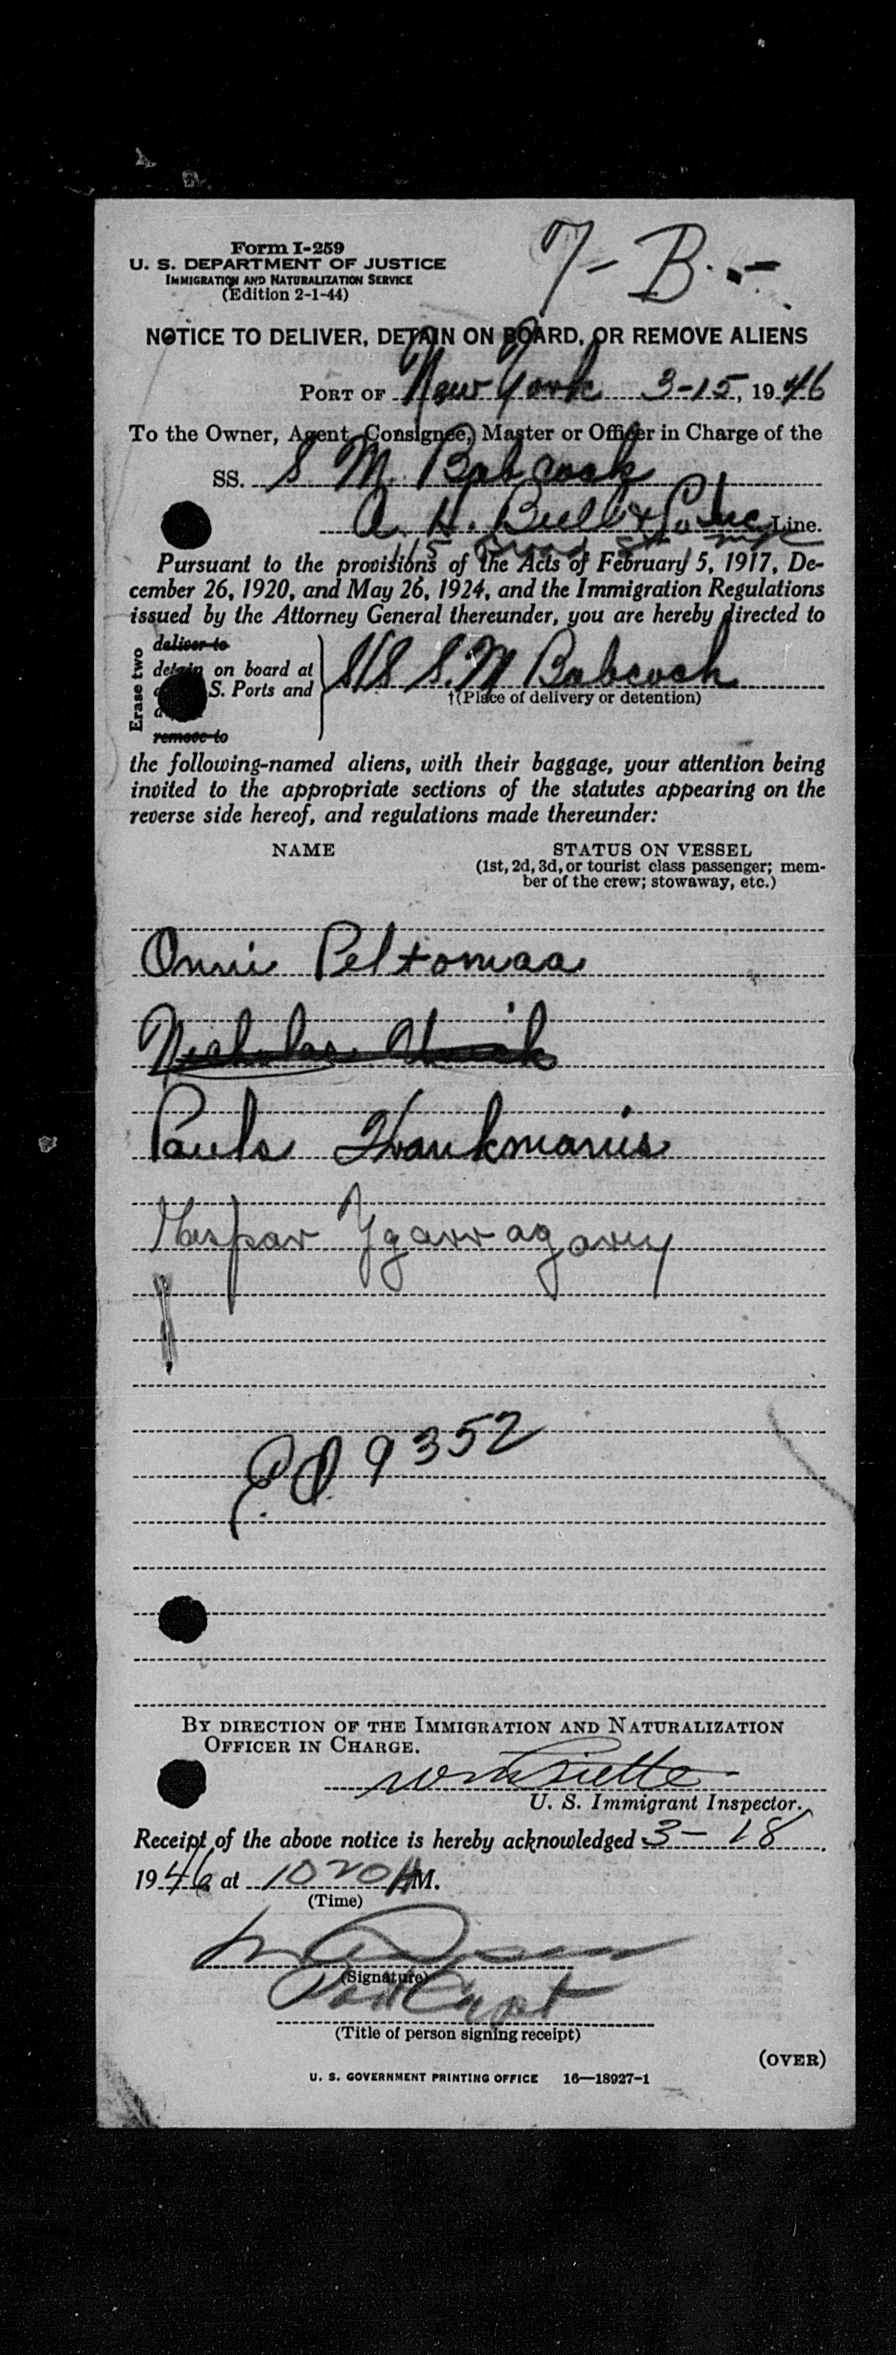 Form I-259
U. S. DEPARTMENT OF JUSTICE
IMMIGRATION AND NATURALIZATION SERVICE
(Edition 2-1-44)
7-B.-
NOTICE TO DELIVER, DETAIN ON BOARD, OR REMOVE ALIENS
PORT OF New York 3-15, 1946
To the Owner, Agent, Consignee, Master or Officer in Charge of the
SS. S M. Babcock
A. H. Bull & Co. Inc Line.
115 Broad St NYC
Pursuant to the provisions of the Acts of February 5, 1917, De-
cember 26, 1920, and May 26, 1924, and the Immigration Regulations
issued by the Attorney General thereunder, you are hereby directed to
Erase two
deliver to
detain on board at
S. Ports and
remove to
S/S S.M Babcock
†(Place of delivery or detention)
the following-named aliens, with their baggage, your attention being
invited to the appropriate sections of the statutes appearing on the
reverse side hereof, and regulations made thereunder:
NAME STATUS ON VESSEL
(1st, 2d, 3d, or tourist class passenger; mem-
ber of the crew; stowaway, etc.)
Onni Peltomaa
Nicholas
Pauls
Gaspar Ygarragarey
P.O. 9352
BY DIRECTION OF THE IMMIGRATION AND NATURALIZATION
OFFICER IN CHARGE.
U. S. Immigrant Inspector.
Receipt of the above notice is hereby acknowledged 3-18
1946 at 1020 A M.
(Time)
(Signature)
Port Capt
(Title of person signing receipt)
(OVER)
U. S. GOVERNMENT PRINTING OFFICE 16—18927-1